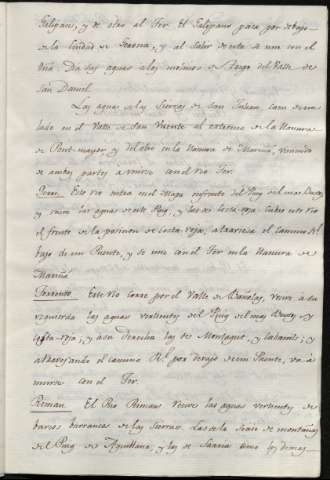 Galigans, y de otro al Ter. El Galigans pasa por debajo
de la Ciudad de Gerona, y al salir de esta se une con el
Oña. Da sus aguas a los molinos de Trigo del Valle de
San Daniel.
Las aguas de las Sierras de San Julian caen de un
lado en el Valle de San Vicente al extremo de la llanura
de Pont-mayor y del otro en la llanura de Mariña, viniendo
de ambas partes a unirse con el rio Ter.
Este rio entra en el Mapa enfrente del Puig
y recive las aguas de este Puig, y las de Costa-roja. Cubre este rio
el frente de la posicion de Costa-roja, atraviesa el camino Rl.
bajo de un Puente, y se une con el Ter en la llanura de
Mariña
Torrento. Este rio corre por el Valle de Bañolas, recive a su
izquierda las aguas vertientes del Puig del mas y
Costa-roja; y a su derecha las de Montagut, y
atravesando el camino Rl. por debajo de un Puente, va á
unirse con el Ter.
Riman. El Rio Riman recive las aguas vertientes de
varios barrancos de las Sierras. Las de la Serie de montañas
del Puig de Aguillana, y las de Sarria como los demas